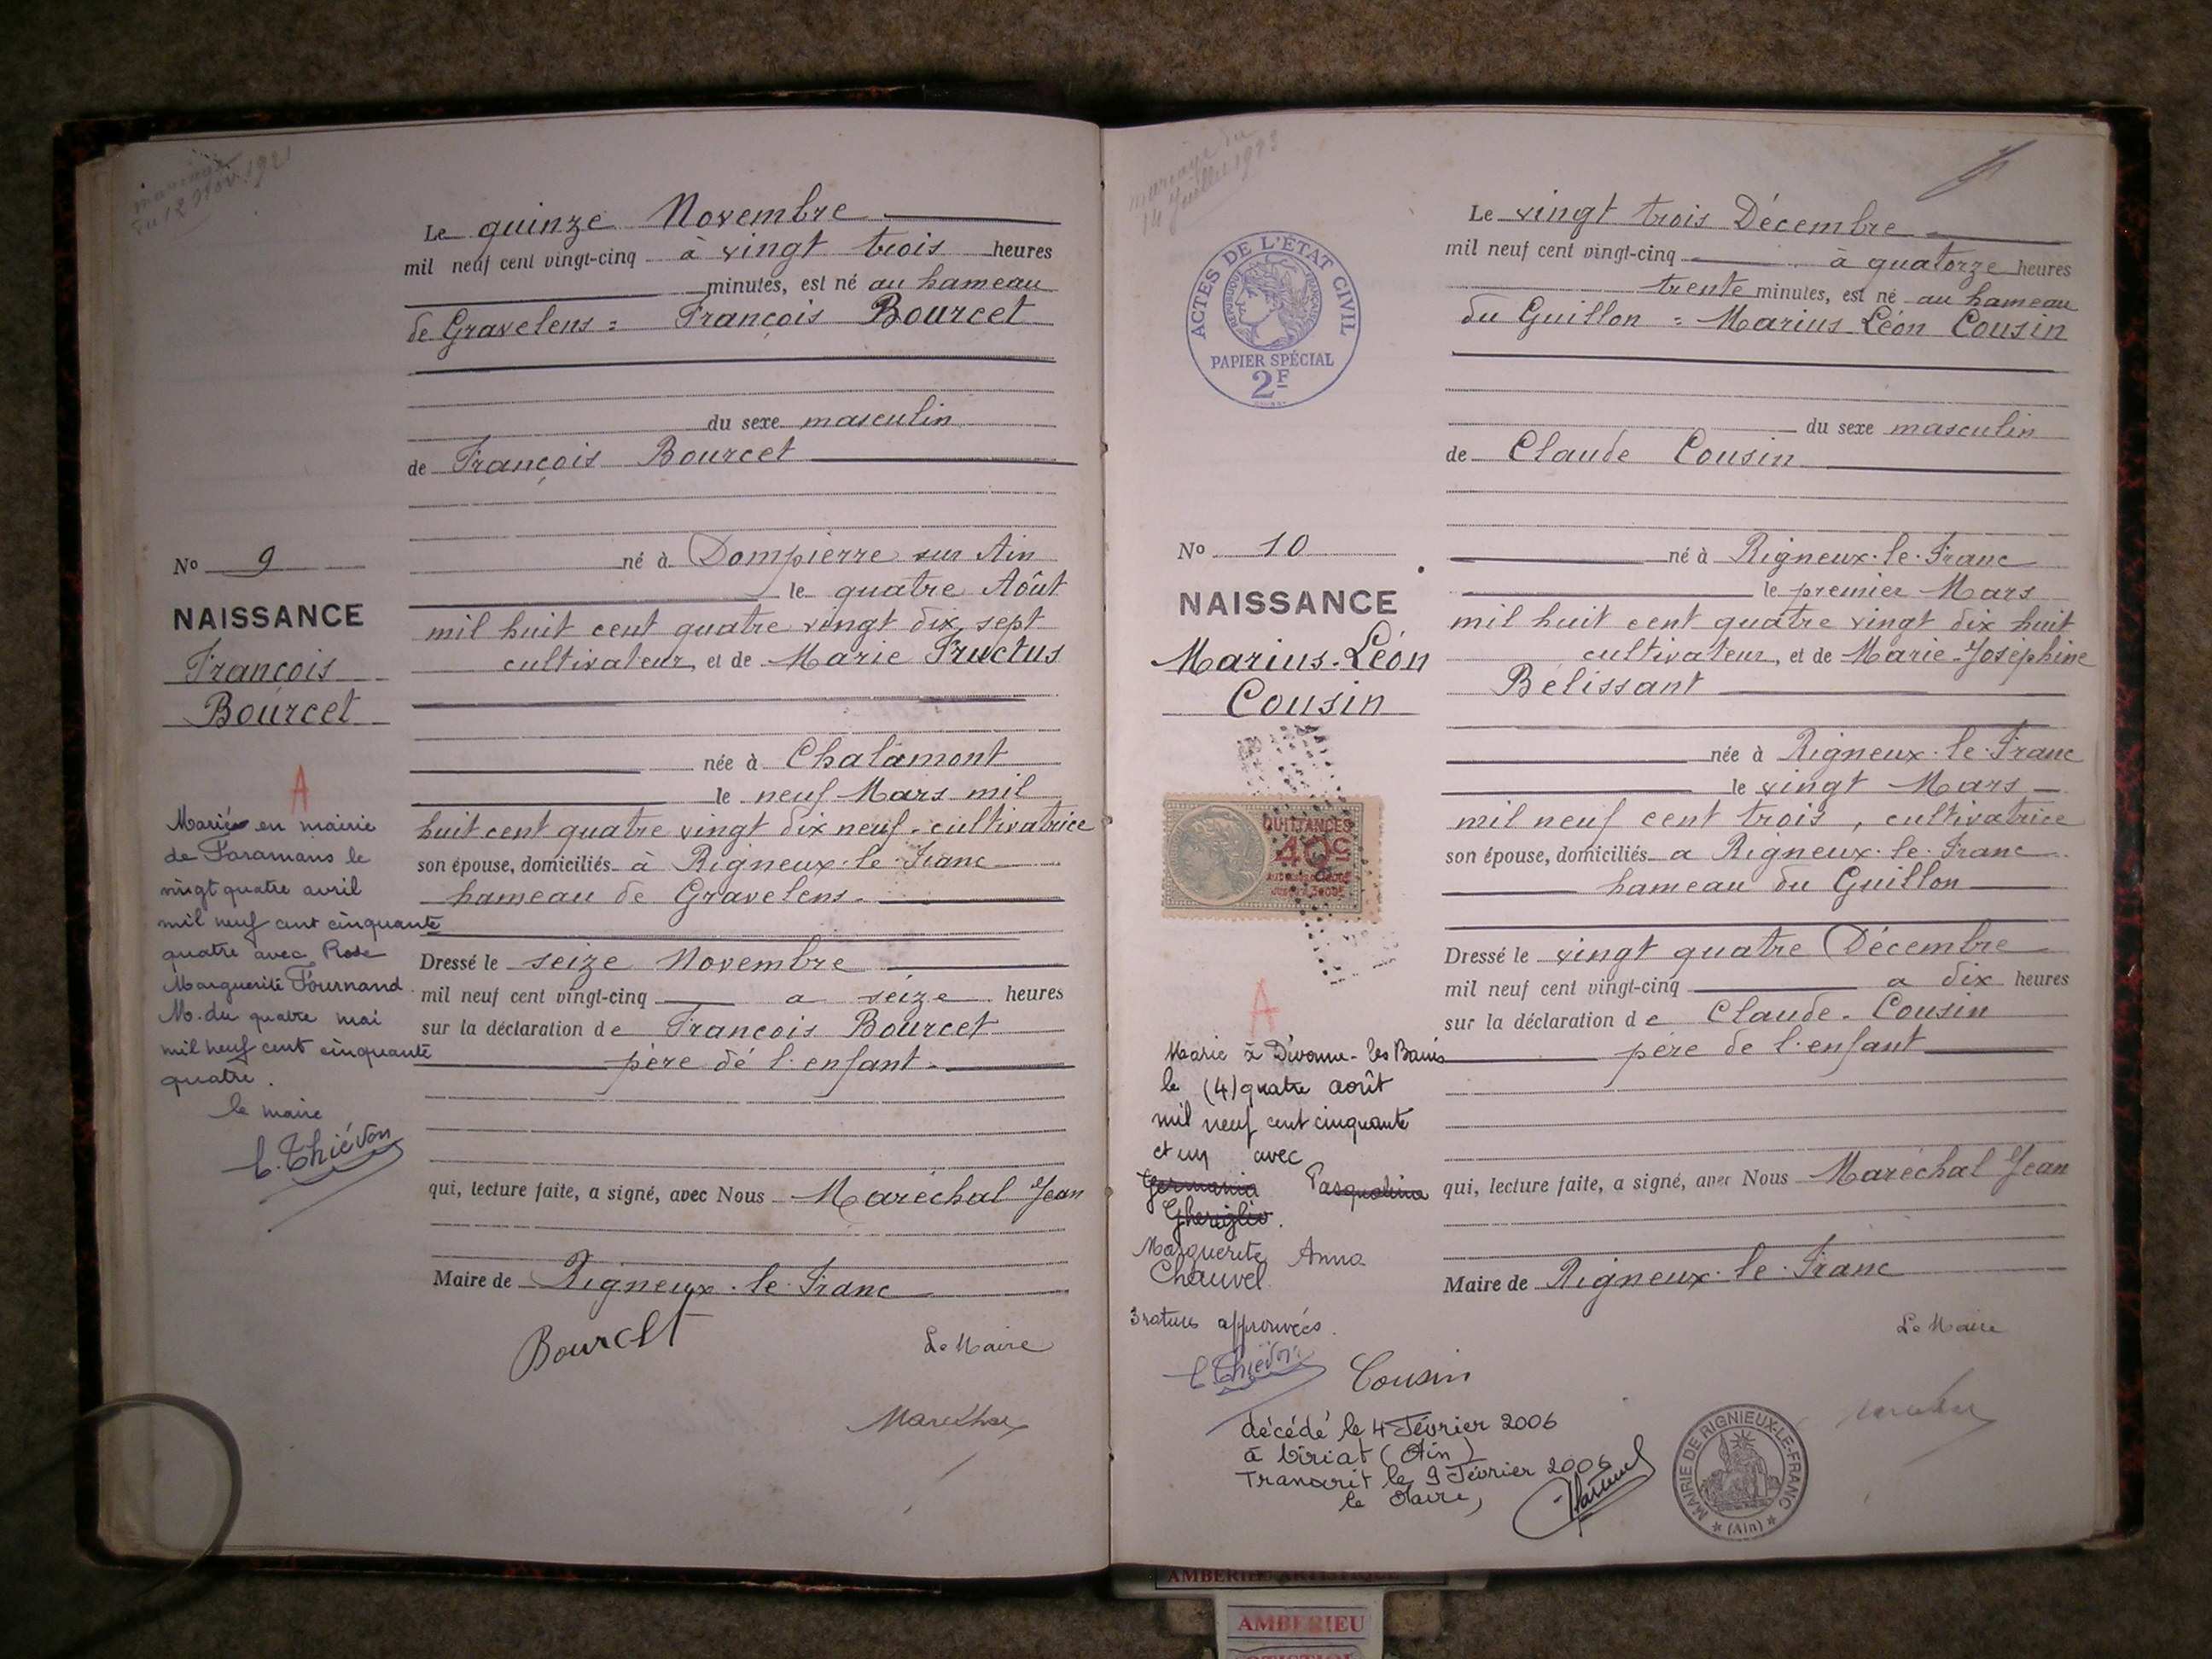 mariage
du 12 Nov. 1921
Le quinze Novembre
mil neuf cent vingt-cinq à vingt trois heures
minutes, est né au hameau
de Gravelens = François Bourcet
du sexe masculin
de François Bourcet
né à Dompierre sur Ain
le quatre Août
mil huit cent quatre vingt dix sept
cultivateur, et de Marie Fructus
née à Chalamont
le neuf Mars mil
huit cent quatre vingt dix neuf - cultivatrice
son épouse, domiciliés à Rigneux-le-Franc
hameau de Gravelens.
Dressé le seize Novembre
mil neuf cent vingt-cinq a seize heures
sur la déclaration de François Bourcet
père dé l'enfant.
qui, lecture faite, a signé, avec Nous Maréchal Jean
Maire de Rigneux-le-Franc
Bourcet
Le Maire
Maréchal
No 9
NAISSANCE
François
Bourcet
A
Marié en mairie
de Faramans le
vingt quatre avril
mil neuf cent cinquante
quatre avec Rose
Marguerite Fournand
M. du quatre mai
mil neuf cent cinquante
quatre.
le maire
C. Thiévon
mariage du
14 Juillet 1923
ACTES DE L'ÉTAT CIVIL
RÉPUBLIQUE FRANÇAISE
PAPIER SPÉCIAL
2F
Le vingt trois Décembre
mil neuf cent vingt-cinq à quatorze heures
trente minutes, est né au hameau
du Guillon = Marius Léon Cousin
du sexe masculin
de Claude Cousin
né à Rigneux-le-Franc
le premier Mars
mil huit cent quatre vingt dix huit
cultivateur, et de Marie-Joséphine
Bélissant
née à Rigneux-le-Franc
le vingt Mars
mil neuf cent trois, cultivatrice
son épouse, domiciliés a Rigneux-le-Franc
hameau du Guillon
Dressé le vingt quatre Décembre
mil neuf cent vingt-cinq a dix heures
sur la déclaration de Claude Cousin
père de l'enfant
qui, lecture faite, a signé, avec Nous Maréchal Jean
Maire de Rigneux-le-Franc
Le Maire
No 10
NAISSANCE
Marius-Léon
Cousin
QUITTANCES
40c
A
Marié à Divonne-les-Bains
le (4) quatre août
mil neuf cent cinquante
et un avec
Germania Pasqualina
Gheriglio.
Marguerite Anna
Chauvel
3 ratures approuvées.
C. Thiévon
Cousin
décédé le 4 Février 2006
à Viriat (Ain)
Transcrit le 9 Février 2006
le Maire,
MAIRIE DE RIGNIEUX-LE-FRANC
* (Ain) *
AMBERIEU ARTISTIQUE
AMBERIEU